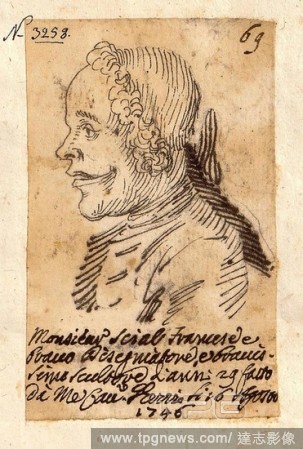 N. 3258.
69
Monsieur Scialì Francese
bravo disegnatore e bravis-
simo Scultore d'anni 29 fatto
da Me Cav.
1746
www.tpgnews.com/ 達志影像